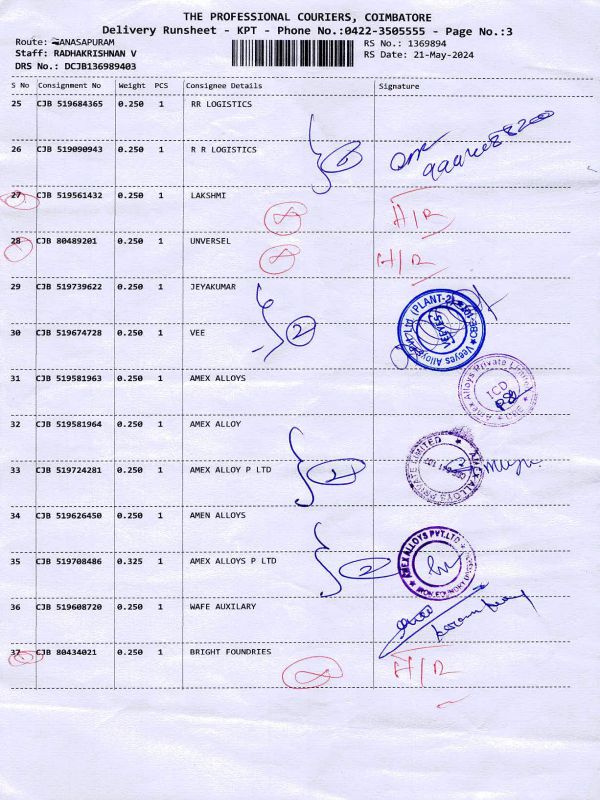 THE PROFESSIONAL COURIERS, COIMBATORE
Delivery Runsheet - KPT - Phone No.:0422-3505555 - Page No.:3
Route: ANASAPURAM RS No.: 1369894
Staff: RADHAKRISHNAN V RS Date: 21-May-2024
DRS No.: DCJB136989403
S No Consignment No Weight PCS Consignee Details Signature
25 CJB 519684365 0.250 1 RR LOGISTICS
26 CJB 519090943 0.250 1 R R LOGISTICS
27 CJB 519561432 0.250 1 LAKSHMI H/R
28 CJB 80489201 0.250 1 UNVERSEL H/R
29 CJB 519739622 0.250 1 JEYAKUMAR
30 CJB 519674728 0.250 1 VEE 2
31 CJB 519581963 0.250 1 AMEX ALLOYS
Amex Alloys Private Limited
ICD
32 CJB 519581964 0.250 1 AMEX ALLOY
33 CJB 519724281 0.250 1 AMEX ALLOY P LTD 2
AMEX ALLOYS PRIVATE LIMITED
34 CJB 519626450 0.250 1 AMEN ALLOYS
35 CJB 519708486 0.325 1 AMEX ALLOYS P LTD 2
AMEX ALLOYS PVT.LTD
IRON FOUNDRY
36 CJB 519608720 0.250 1 WAFE AUXILARY
37 CJB 80434021 0.250 1 BRIGHT FOUNDRIES H/R